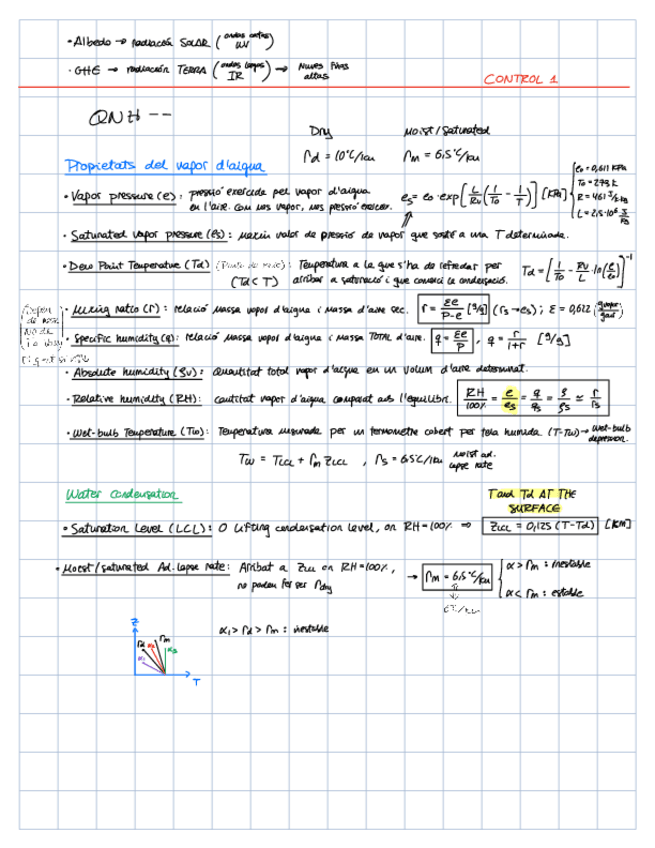 • Albedo → radiación SOLAR (ondas cortas UV)
• GHE → radiación TERRA (ondas largas IR) → NUVES altas
CONTROL 1
QNH --
Dry Moist/Saturated
Γd = 10°C/km Γm = 6,5°C/km
Propietats del vapor d'aigua
• Vapor pressure (e): pressió exercida pel vapor d'aigua en l'aire. Com més vapor, més pressió exerceix.
es = e0·exp[L/Rv(1/T0 - 1/T)] [kPa]
e0 = 0,611 kPa
T0 = 273 K
R = 461 J/K·kg
L = 2,5·10⁶ J/kg
• Saturated vapor pressure (es): màxim valor de pressió de vapor que sosté a una T determinada.
• Dew Point Temperature (Td) (Punto de rocío): Temperatura a la que s'ha de refredar per
(Td < T) arribar a saturació i que comenci la condensació.
Td = [1/T0 - Rv/L · ln(e/e0)]⁻¹
• Mixing ratio (r): relació massa vapor d'aigua i massa d'aire sec. r = εe/P-e [g/g] (rs → es); ε = 0,622 (g vapor/g air)
• Specific humidity (q): relació massa vapor d'aigua i massa TOTAL d'aire. q = εe/P , q = r/1+r [g/g]
• Absolute humidity (ρv): Quantitat total vapor d'aigua en un volum d'aire determinat.
• Relative humidity (RH): cantitat vapor d'aigua comparat amb l'equilibri. RH/100% = e/es = q/qs = ρ/ρs ≃ r/rs
• Wet-bulb Temperature (Tw): Temperatura mesurada per un termometre cobert per tela humida. (T-Tw) → wet-bulb depression.
Tw = TLCL + Γm ZLCL , Γs = 6,5°C/km moist ad. lapse rate
Water condensation
T and Td AT THE
SURFACE
• Saturation Level (LCL): O Lifting condensation level, on RH = 100% ⇒ ZLCL = 0,125 (T-Td) [km]
• Moist/saturated Ad. lapse rate: Arribat a ZLCL on RH = 100%,
no podem fer ser Γdry
→ Γm = 6,5°C/km
α > Γm : inestable
α < Γm : estable
α1 > Γd > Γm : inestable
Z
Γd α2 Γm
α1 α3
T